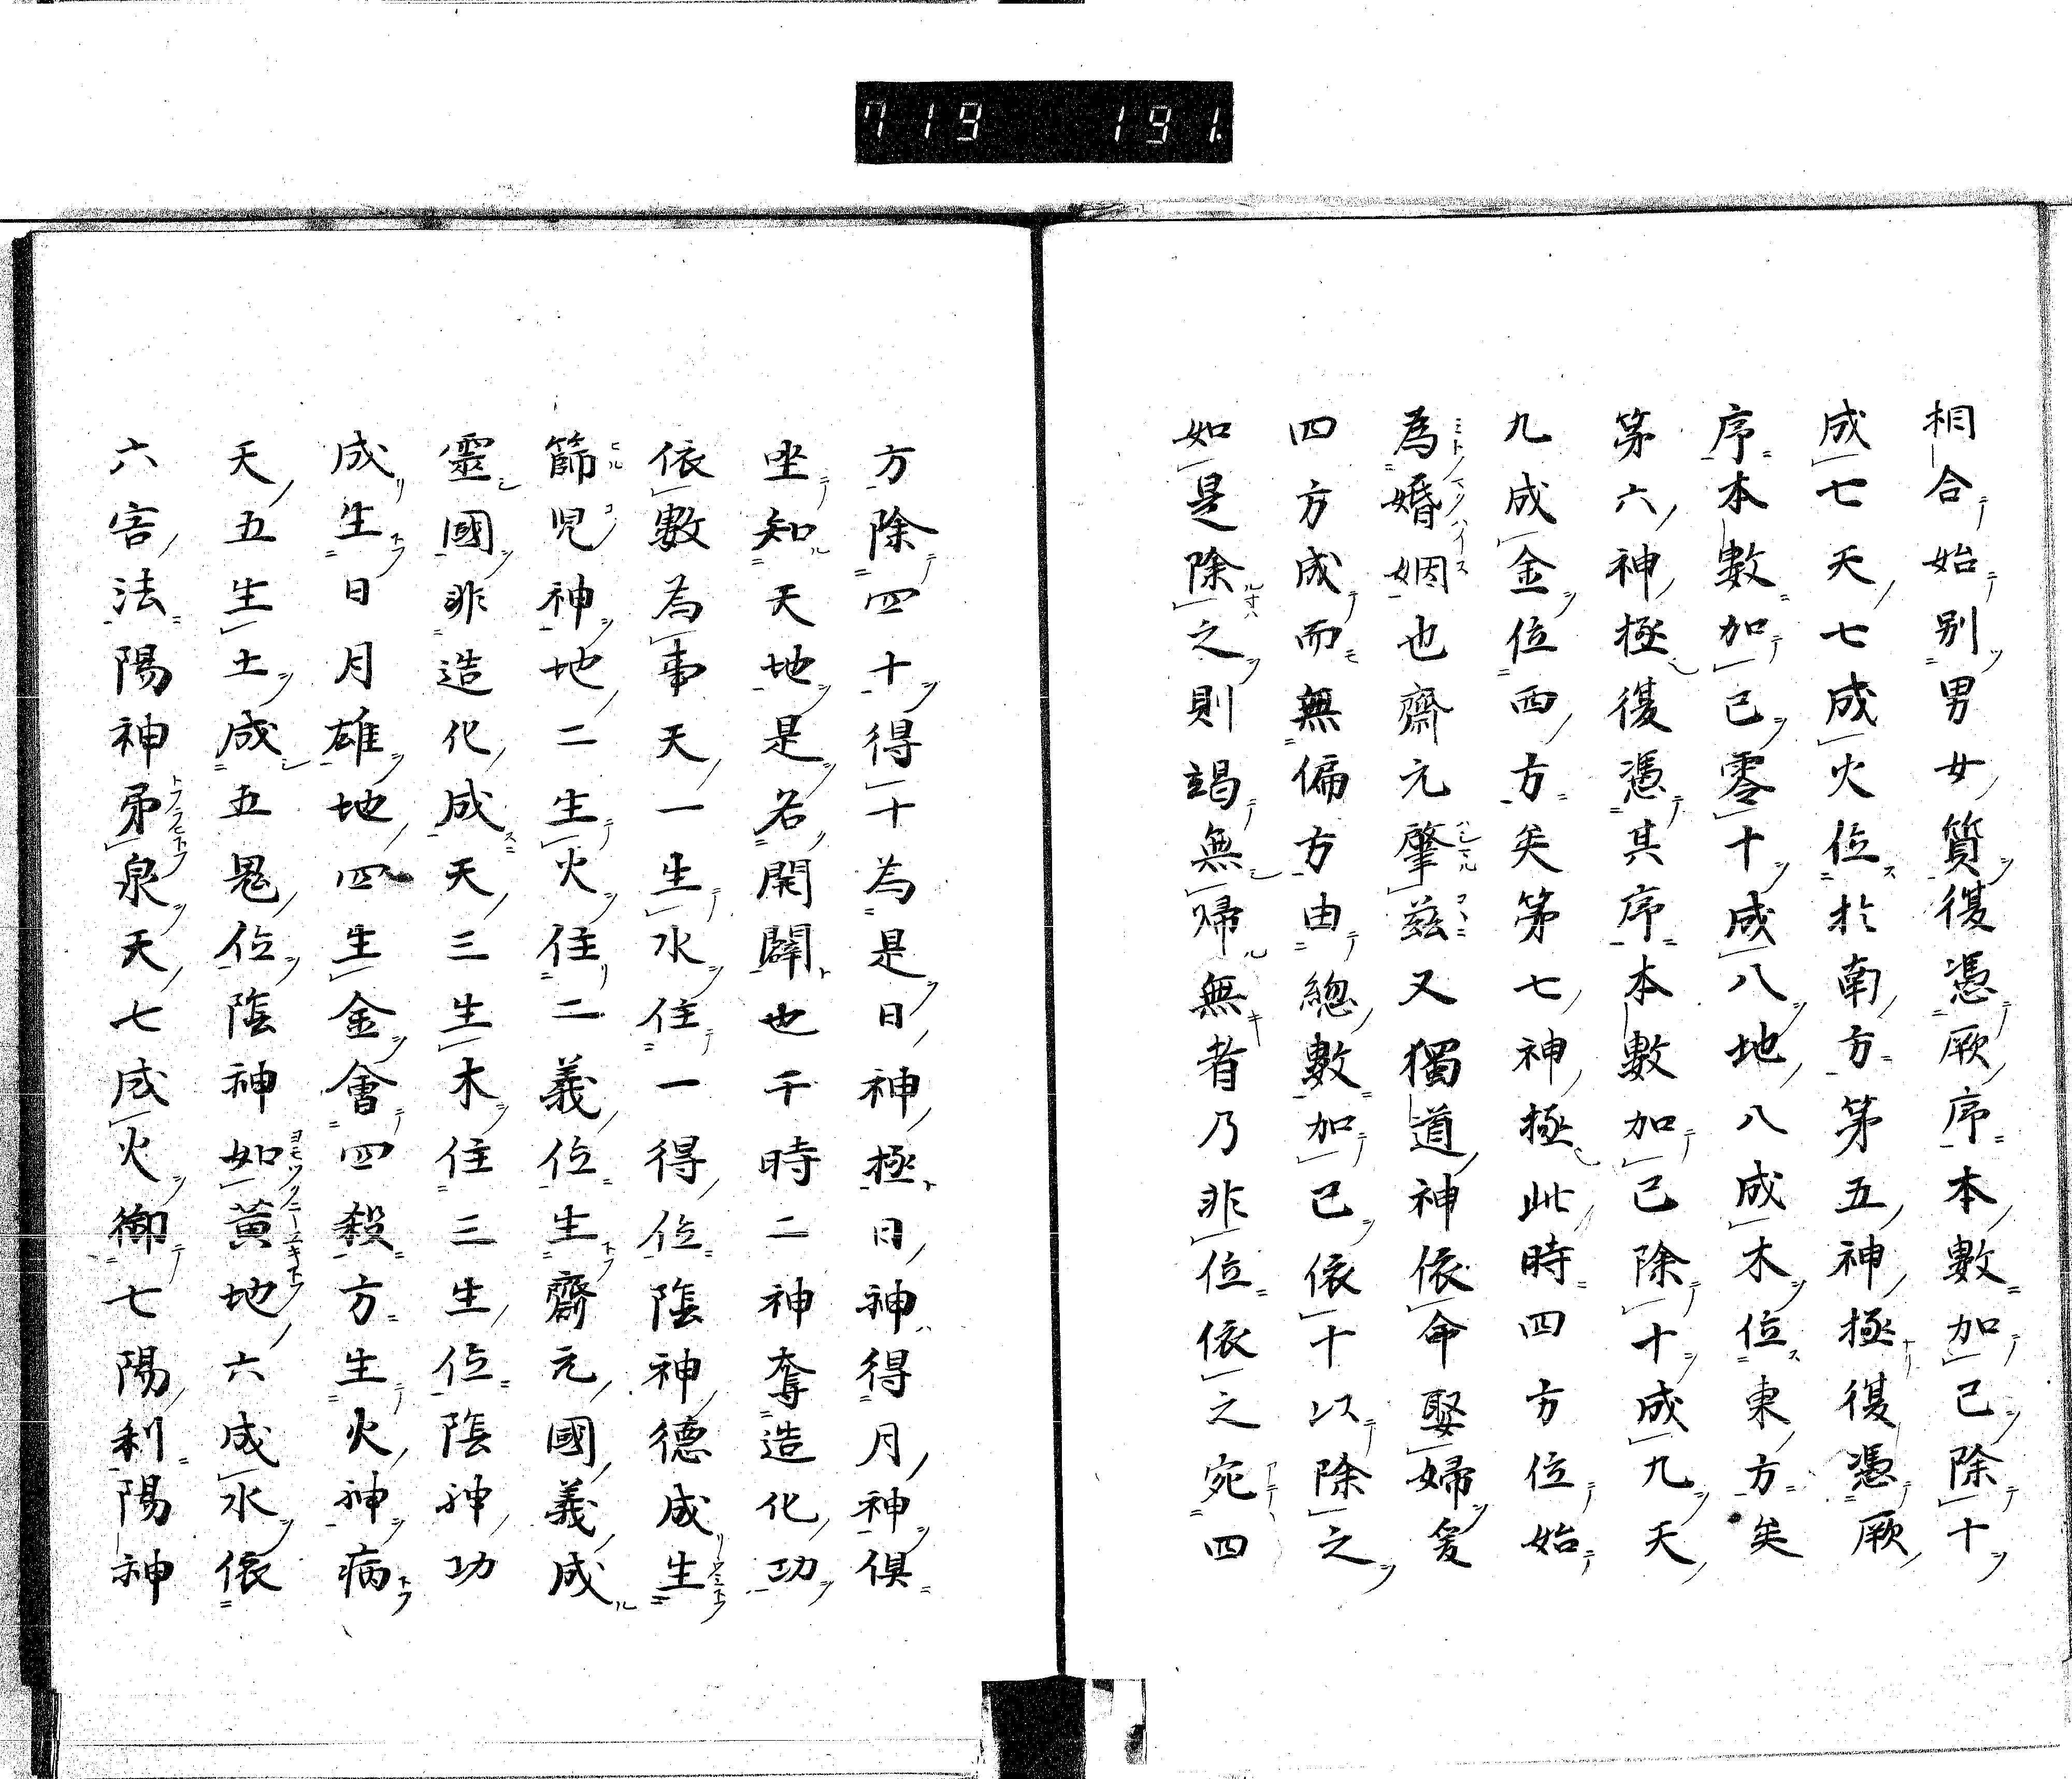 719 191.
相合始別男女質復憑厥序本數加己除十
成七天七成火位於南方第五神極復憑厥
序本數加己零十成八地八成木位東方矣
第六神極復憑其序本數加己除十成九天
九成金位西方矣第七神極此時四方位始
為婚姻也齋元肇茲又獨道神依命娶婦爰
四方成而無偏方由總數加己依十以除之
如是除之則竭無歸無者乃非位依之宛四
方除四十得十為是日神極日神得月神俱
坐知天地是名開闢也千時二神奪造化功
依數為事天一生水住一得位陰神德成生
篩兒神地二生火住二義位生齋元國義成
靈國非造化成天三生木住三生位陰神功
成生日月雄地四生金會四殺方生火神病
天五生土成五鬼位陰神如黃地六成水依
六害法陽神弟泉天七成火御七陽利陽神